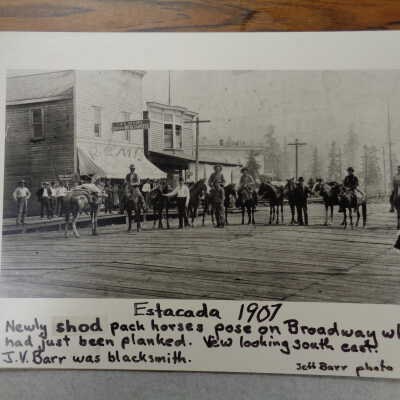 Estacada 1907
Newly shod pack horses pose on Broadway wh
had just been planked. Vew looking south east.
J.V. Barr was blacksmith.
Jeff Barr photo